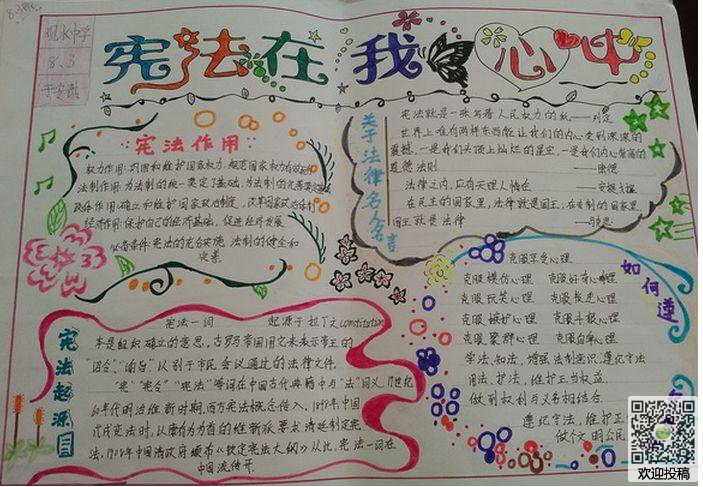 8.3班
8.3
宪法在我心中
宪法作用
权力作用:巩固和维护国家权力,规范国家权力有效运行
法制作用:为法制的统一奠定了基础,为法制的完善
政治作用:确立和维护国家政治制度,改革国家政治体制
经济作用:保护自己的经济基础,促进经济发展
必备条件:宪法的充分实施 法制的健全和
完善
关于法律名人名言
宪法就是一张写着人民权力的纸——列宁
世界上唯有两样东西能让我们的内心受到深深的
震撼,一是我们头顶上灿烂的星空,一是我们内心崇高的
道德法则 ——康德
法律之内,应有天理人情在 ——安提戈涅
在民主的国家里,法律就是国王,在专制的国家里
国王就是法律 ——马克思
宪法起源
宪法一词 起源于拉丁文constitution
本是组织确立的意思,古罗马帝国用它来表示帝王的
“诏令”“谕旨”以别于市民会议通过的法律文件.
“宪”“宪令”“宪法”等词在中国古代典籍中与“法”同义,19世纪
60年代明治维新时期,西方宪法概念传入,1898年中国
戊戌变法时,以康有为为首的维新派要求清廷制定宪
法,1908年中国清政府颁布《钦定宪法大纲》从此宪法一词在
中国流传开.
如何遵
克服享受心理
克服模仿心理 克服好奇心理
克服玩笑心理 克服报复心理
克服嫉妒心理 克服斗狠心理
克服聚群心理 克服自卑心理
学法,知法,增强法制意识,遵纪守法
用法,护法,维护正当权益.
做到权利与义务相结合
遵纪守法,维护正
做文明公民
欢迎投稿